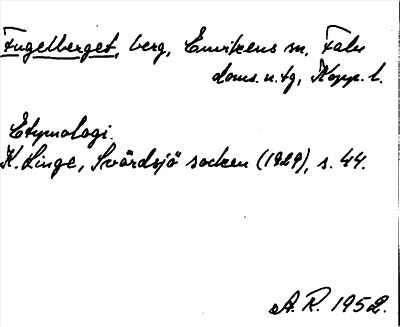 Fugelberget, berg, Envikens sn, Falu
doms. n. tg, Kopp. l.
Etymologi.
K. Linge, Svärdsjö socken (1929), s. 44.
A. R. 1952.